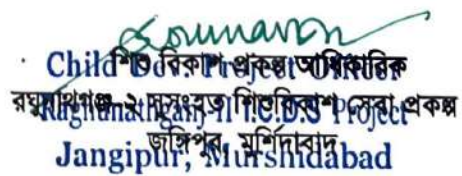 Child Dev. Project Officer
শিশু বিকাশ প্রকল্প আধিকারিক
Raghunathganj-II I.C.D.S Project
রঘুনাথগঞ্জ-২ সুসংহত শিশুবিকাশ সেবা প্রকল্প
জঙ্গিপুর, মুর্শিদাবাদ
Jangipur, Murshidabad